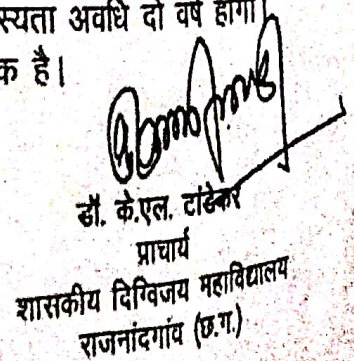 स्यता अवधि दो वर्ष होगी।
क है।
डॉ. के.एल. टांडेकर
प्राचार्य
शासकीय दिग्विजय महाविद्यालय
राजनांदगांव (छ.ग.)